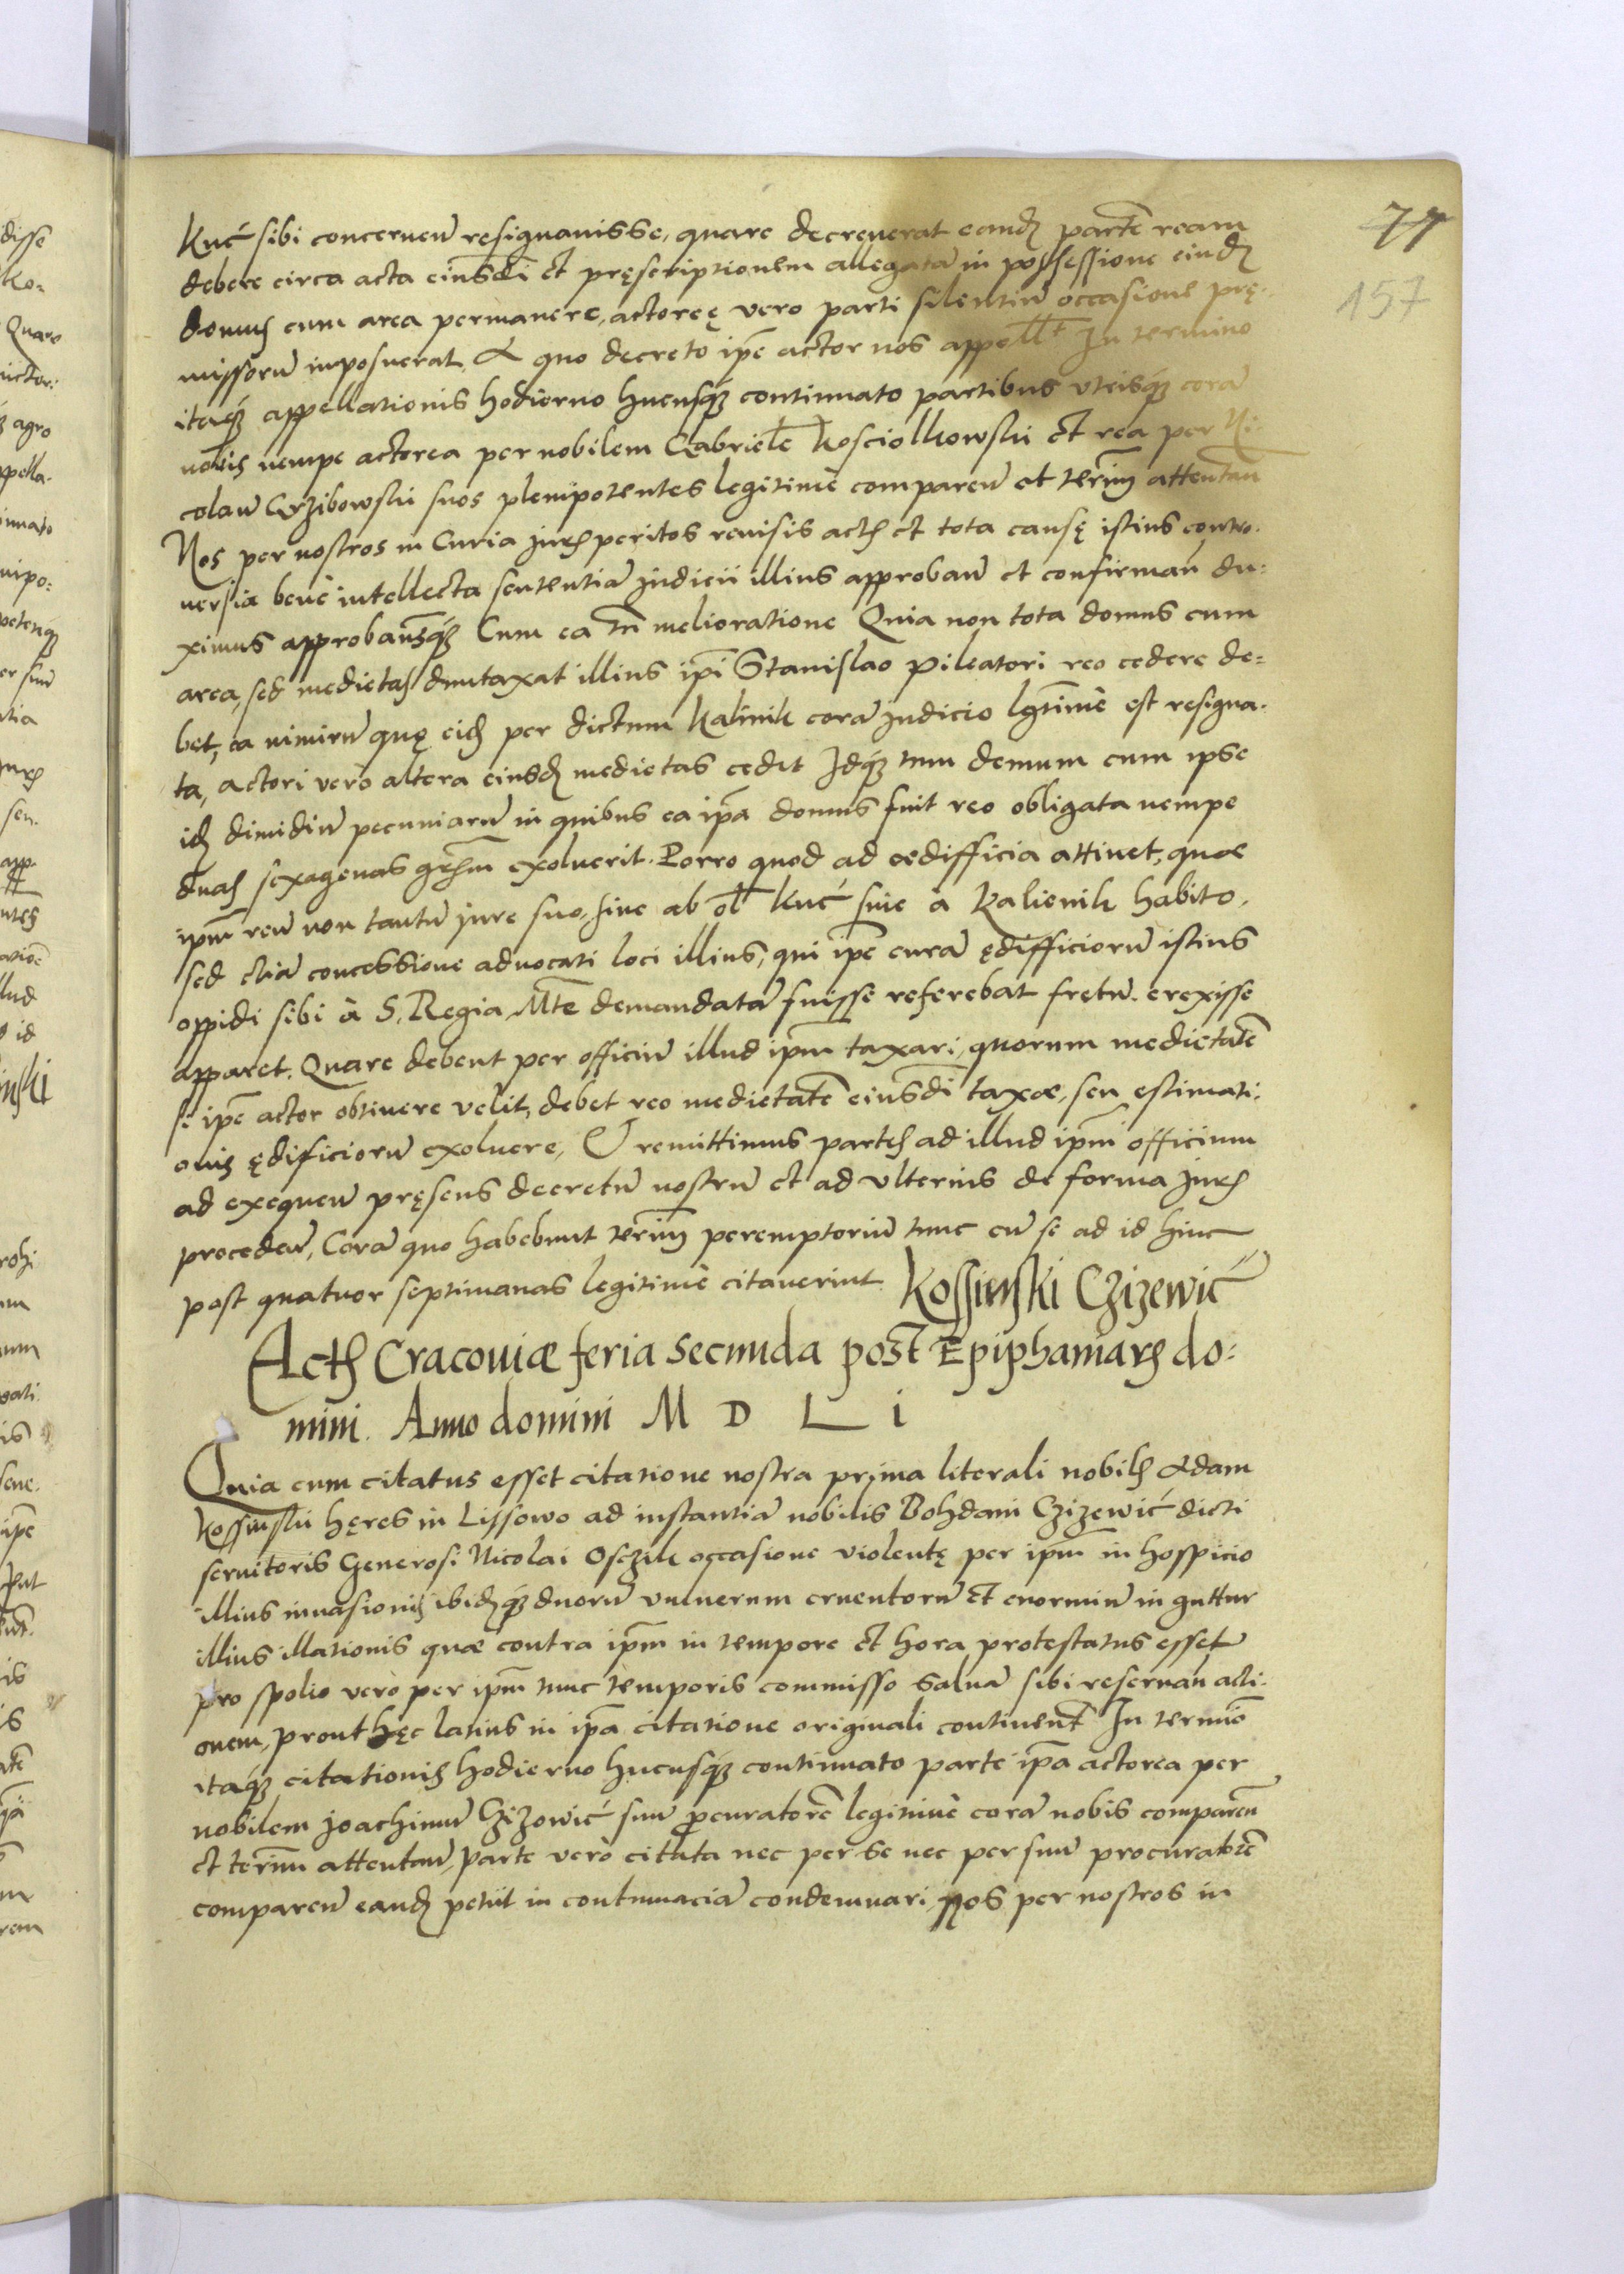 77
157
Kuć sibi concernen̄ resignauisse, quare decreuerat eandꝫ partē ream
debere circa acta eiusdī et pręscriptionem allegatā in possessione eiusdꝫ
domus cum area permanere, actoreę vero parti silentiū occasione prę-
missorū imposuerat, A quo decreto ip̄e actor nos appell̄t In termino
itaqꝫ appellationis hodierno hucusqꝫ continuato partibus vtrisqꝫ corā
nobis nempe actorea per nobilem Gabrielē Kosciolkowski et rea per Ni-
colaū Grzibowski suos plenipotentes legitimè comparen̄ et term̄ attentan̄
Nos per nostros in Curia Juris peritos reuisis actis et tota causę istius contro-
uersia benè intellecta sententiā Judicii illius approban̄ et confirman̄ du-
ximus approbamusqꝫ Cum ea tn̄ melioratione Quia non tota domus cum
area, sed medietas duntaxat illius ip̄i Stanislao pileatori reo cedere de-
bet, ea nimirū quę eidꝫ per dictum Kalinik corā Judicio lgtimè est resigna-
ta, actori verò altera eiusdꝫ medietas cedet Idqꝫ tum demum cum ipse
idꝫ dimidiū pecuniarū in quibus ea ip̄a domus fuit reo obligata nempe
duas sexagenas grossm̄ exoluerit. Porro quod ad aedifficia attinet, quae
ip̄m reū non tantū jure suo, siue ab ol̄ Kuć siue à Kalienik habito,
sed etiā concessione aduocati loci illius, qui ip̄e curā ędifficiorū istius
oppidi sibi à S. Regia Mt̄e demandatā fuisse referebat fretū erexisse
apparet. Quare debent per officiū illud ip̄m taxari, quorum medietatē
si ip̄e actor obtinere velit, debet reo medietatē eiusdī taxae, seu estimati-
onis ędificiorū exoluere, Et remittimus partes ad illud ip̄m officium
ad exequen̄ pręsens decretū nostrū et ad vlterius de forma Juris
proceden̄, Corā quo habebunt term̄ peremptoriū tunc cū se ad id hinc
post quatuor septimanas legitimè citauerint Kossinski Czizewić
Actꝫ Cracouiae feria secunda post Epiphaniarꝫ do-
mini. Anno domini M D L i
Quia cum citatus esset citatione nostra prima literali nobilis Adam
Kossinski hęres in Lissowo ad instantiā nobilis Bohdani Czizewić dicti
seruitoris Generosi Nicolai Osczik occasione violentę per ip̄m in hospicio
illius inuasionis ibidꝫqꝫ duorū vulnerum cruentorū et enormiū in guttur
illius illationis quae contra ip̄m in tempore et hora protestatus esset
pro spolio verò per ip̄m tunc temporis commisso saluā sibi reseruan̄ acti-
onem, prout hęc latius in ip̄a citatione originali continent̄ In terminō
itaqꝫ citationis hodierno hucusqꝫ continuato parte ip̄a actorea per
nobilem Joachimū Czizowić suū procuratorē legitimè corā nobis comparen̄
et term̄ attentan̄, Parte verò citata nec per se nec per suū procuratorē
comparen̄ eandꝫ petiit in contumaciā condemnari, Nos per nostros in